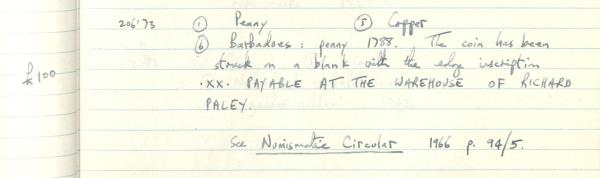 206'73 ① Penny ⑤ Copper
⑥ Barbadoes : penny 1788. The coin has been
£100
struck on a blank with the edge inscription
·XX· PAYABLE AT THE WAREHOUSE OF RICHARD
PALEY.
See Numismatic Circular 1966 p. 94/5.